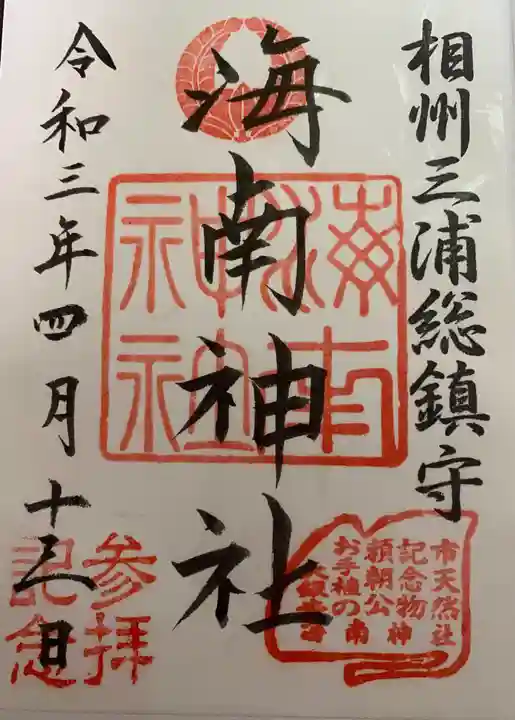 相州三浦総鎮守
海南神社
令和三年四月十三日
海南
神社
市天然
記念物
頼朝公
お手植の
大銀杏
海南神社
参拝
記念